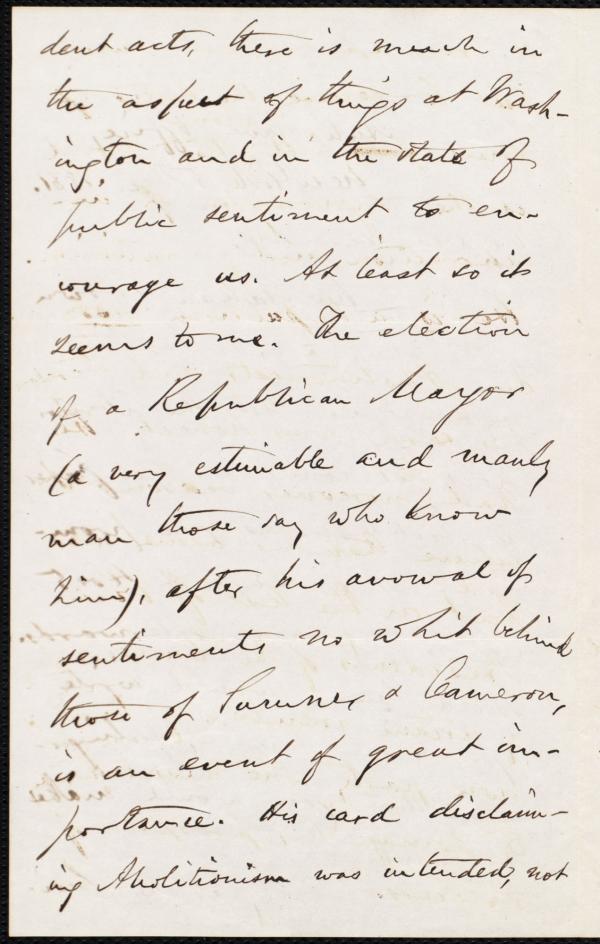 dent acts, there is much in
the aspect of things at Wash-
ington and in the state of
public sentiment to en-
courage us. At least so it
seems to me. The election
of a Republican Mayor
(a very estimable and manly
man those say who know
him), after his avowal of
sentiments no whit behind
those of Sumner & Cameron,
is an event of great im-
portance. His card disclaim-
ing Abolitionism was intended, not